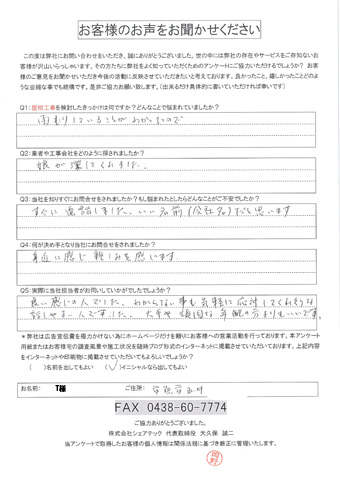 お客様のお声をお聞かせください
この度は弊社にお問い合わせをいただき、誠にありがとうございました。世の中には弊社の存在やサービスをご存知ないお
客様が沢山いらっしゃいます。その方たちに弊社をよく知っていただくためのアンケートにご協力いただけるでしょうか？ お客
様のご意見をお聞かせいただき今後の活動に反映させていただきたいと考えております。良かったこと、嬉しかったことどのよ
うな些細な事でも結構です。是非ご協力お願い致します。（出来るだけ具体的に書いていただければ幸いです）
Q1：屋根工事を検討したきっかけは何ですか？どんなことで悩まれていましたか？
雨もりしていることがわかったので
Q2：業者や工事会社をどのように探されましたか？
娘が探してくれました。
Q3：当社を知りすぐにお問合せをされましたか？もし悩まれたとしたらどんなことがご不安でしたか？
すぐに電話しました、いい名前(会社名)だと思います
Q4：何が決め手となり当社にお問合せをされましたか？
身近に感じ親しみを感じます。
Q5：実際に当社担当者がお伺いしていかがでしたでしょうか？
良い感じの人でした、わからない事も気軽に応対してくれそうな
話しやすい人でした、
＊弊社は広告宣伝費を極力かけない為にホームページだけを頼りにお客様への営業活動を行っております。本アンケート
用紙またはお客様宅の調査風景や施工状況を随時ブログ形式のインターネットに掲載させていただいております。上記内容
をインターネットや印刷物に掲載させていただいてもよろしいでしょうか？
（　）名前を出してもよい　（✓）イニシャルなら出してもよい
お名前：　T様　ご住所：
FAX 0438-60-7774
ご協力ありがとうございました。
株式会社シェアテック 代表取締役 大久保 誠二
当アンケートで取得したお客様の個人情報は関係法規に基づき厳正に管理いたします。